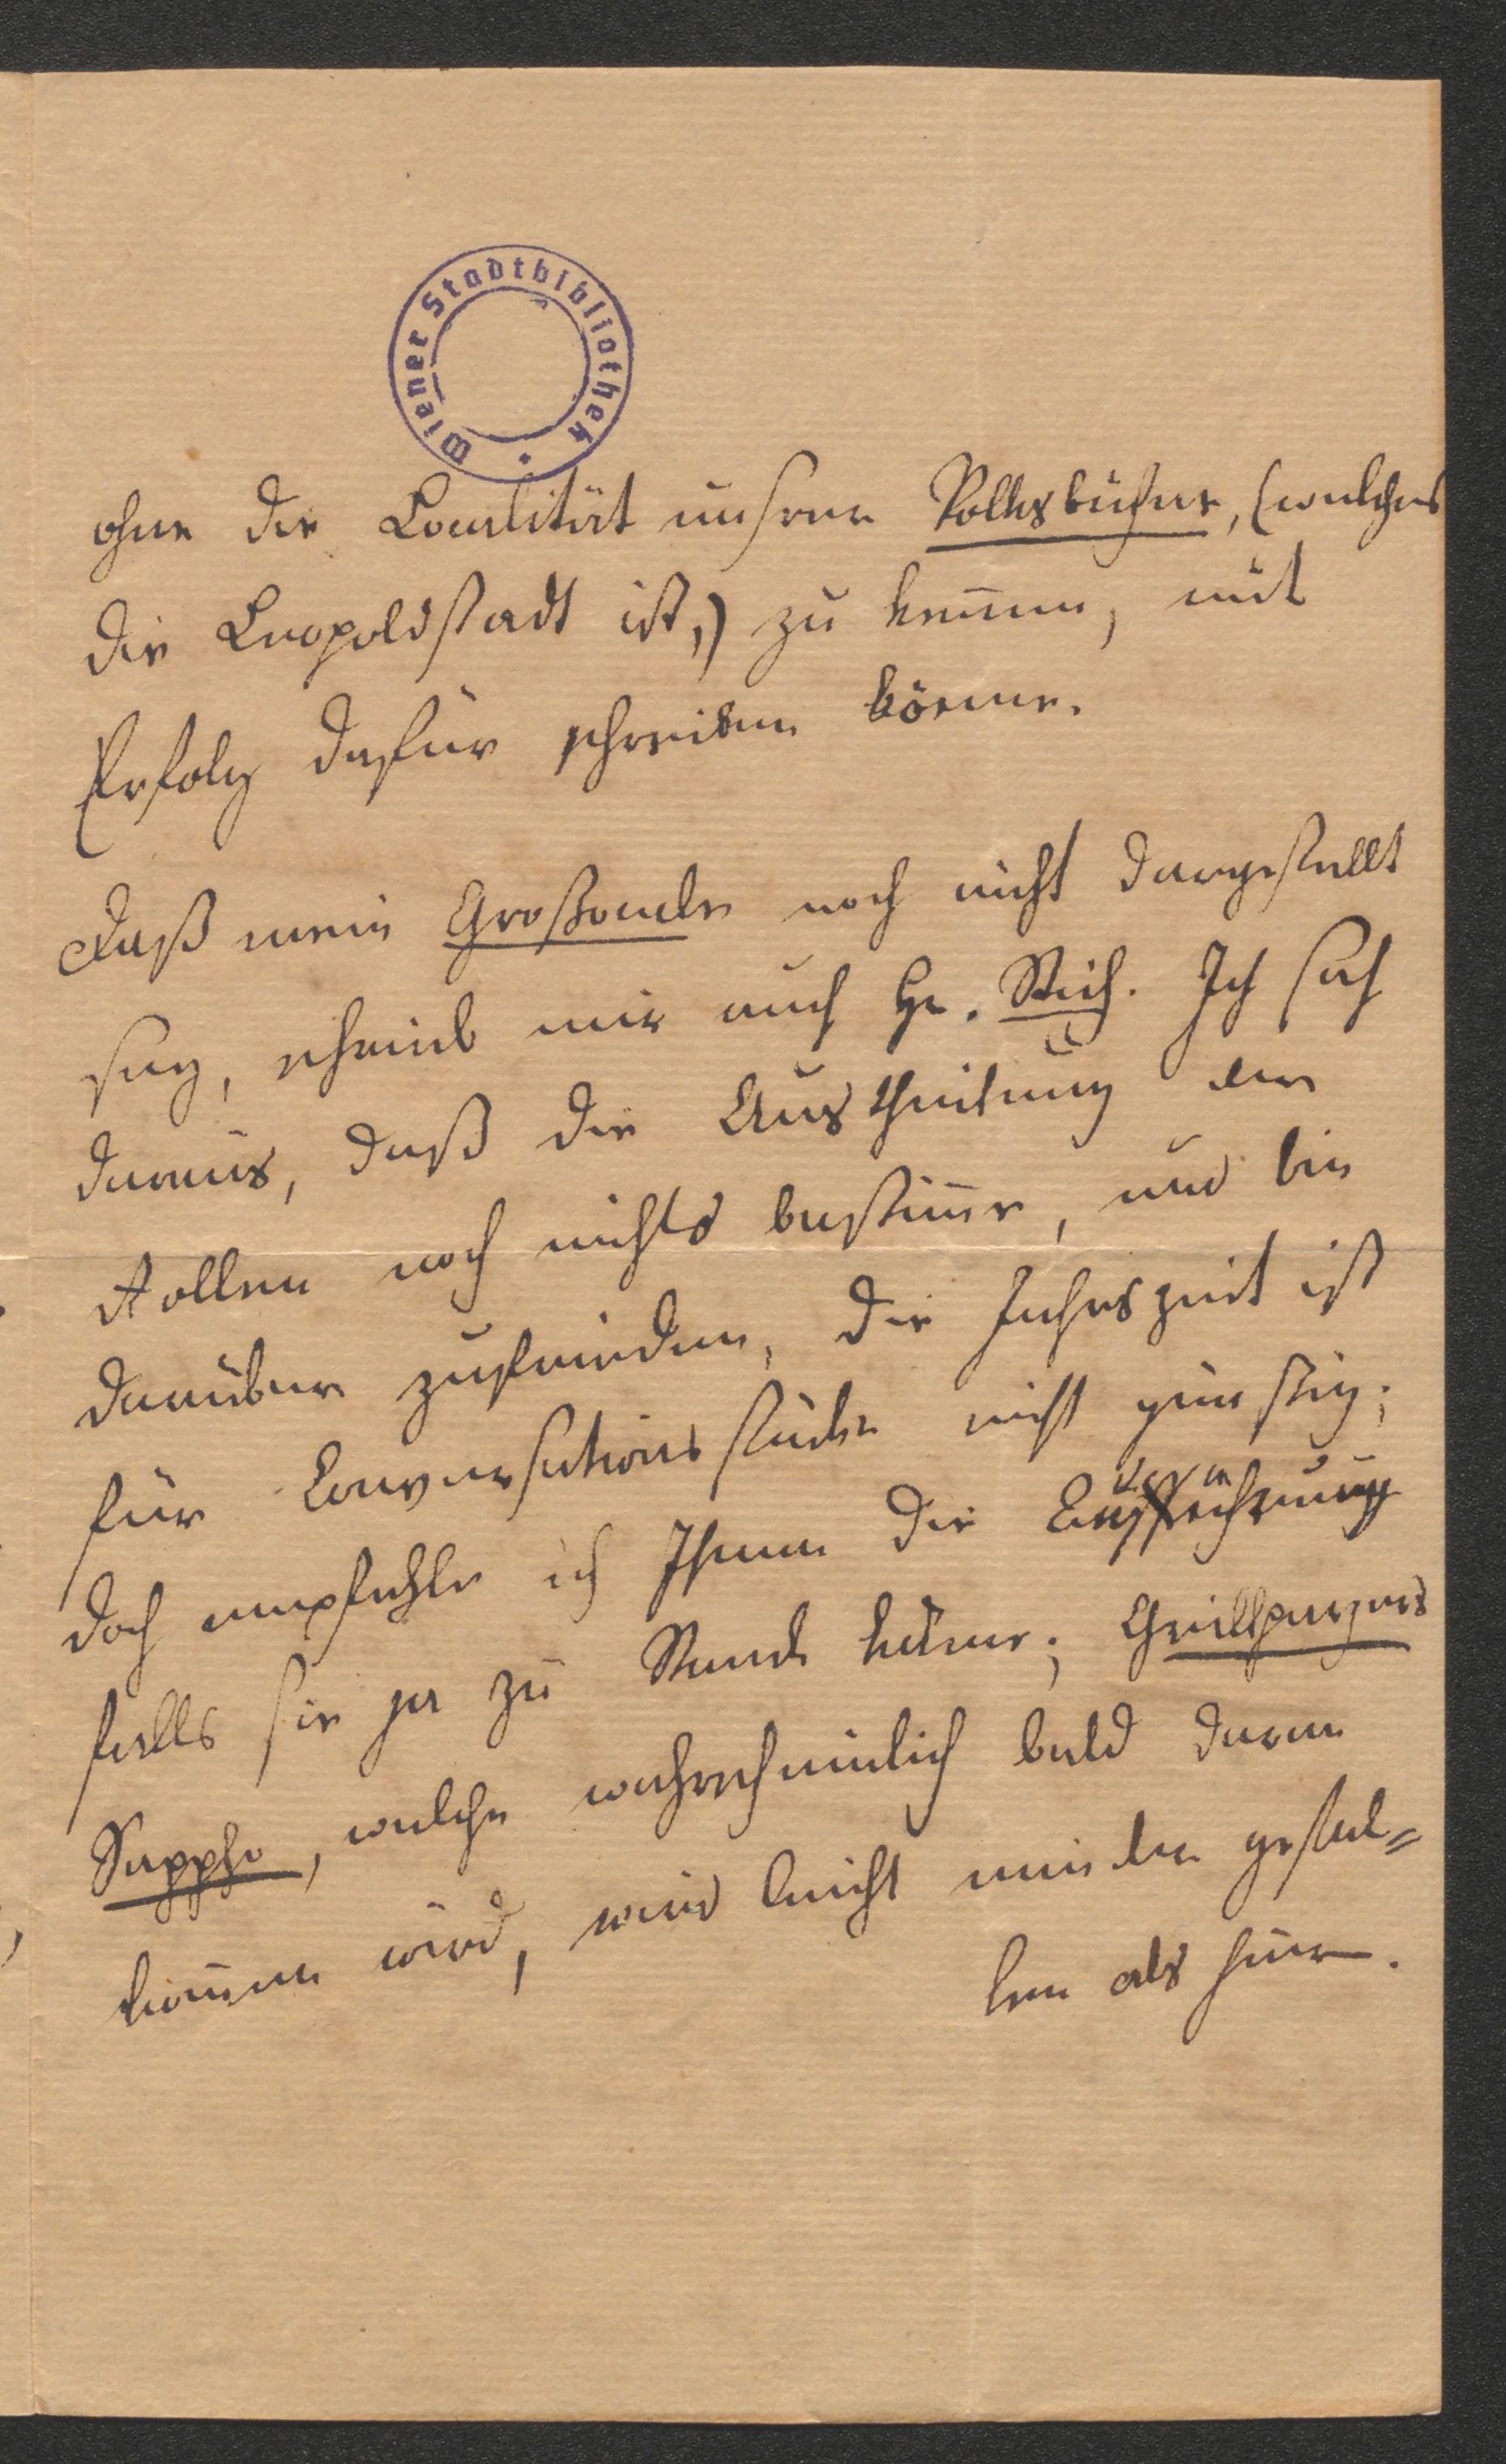 Wiener Stadtbibliothek
ohne die Localität unsrer Volksbühne, (welches
die Leopoldstadt ist,) zu kennen, mit
Erfolg dafür schreiben könne.
Daß mein Großonkel noch nicht dargestellt
sey, schrieb mir auch Hr. Stich. Ich sah
daraus, daß die Austheilung der
Rollen noch nichts bestimme, und bin
darüber zufrieden, die Jahrszeit ist
für Conversationsstücke nicht günstig;
doch empfehle ich Ihnen die
falls sie ja zu Stande käme; Grillparzers
Sappho, welche wahrscheinlich bald daran
kommen wird, wird leicht minder gefal=
len als hier.